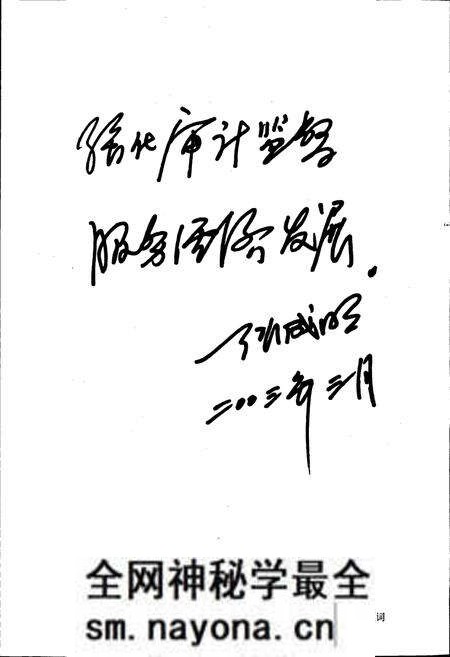 强化审计监督
服务经济发展。
成明
二〇〇三年三月
词
全网神秘学最全
sm.nayona.cn